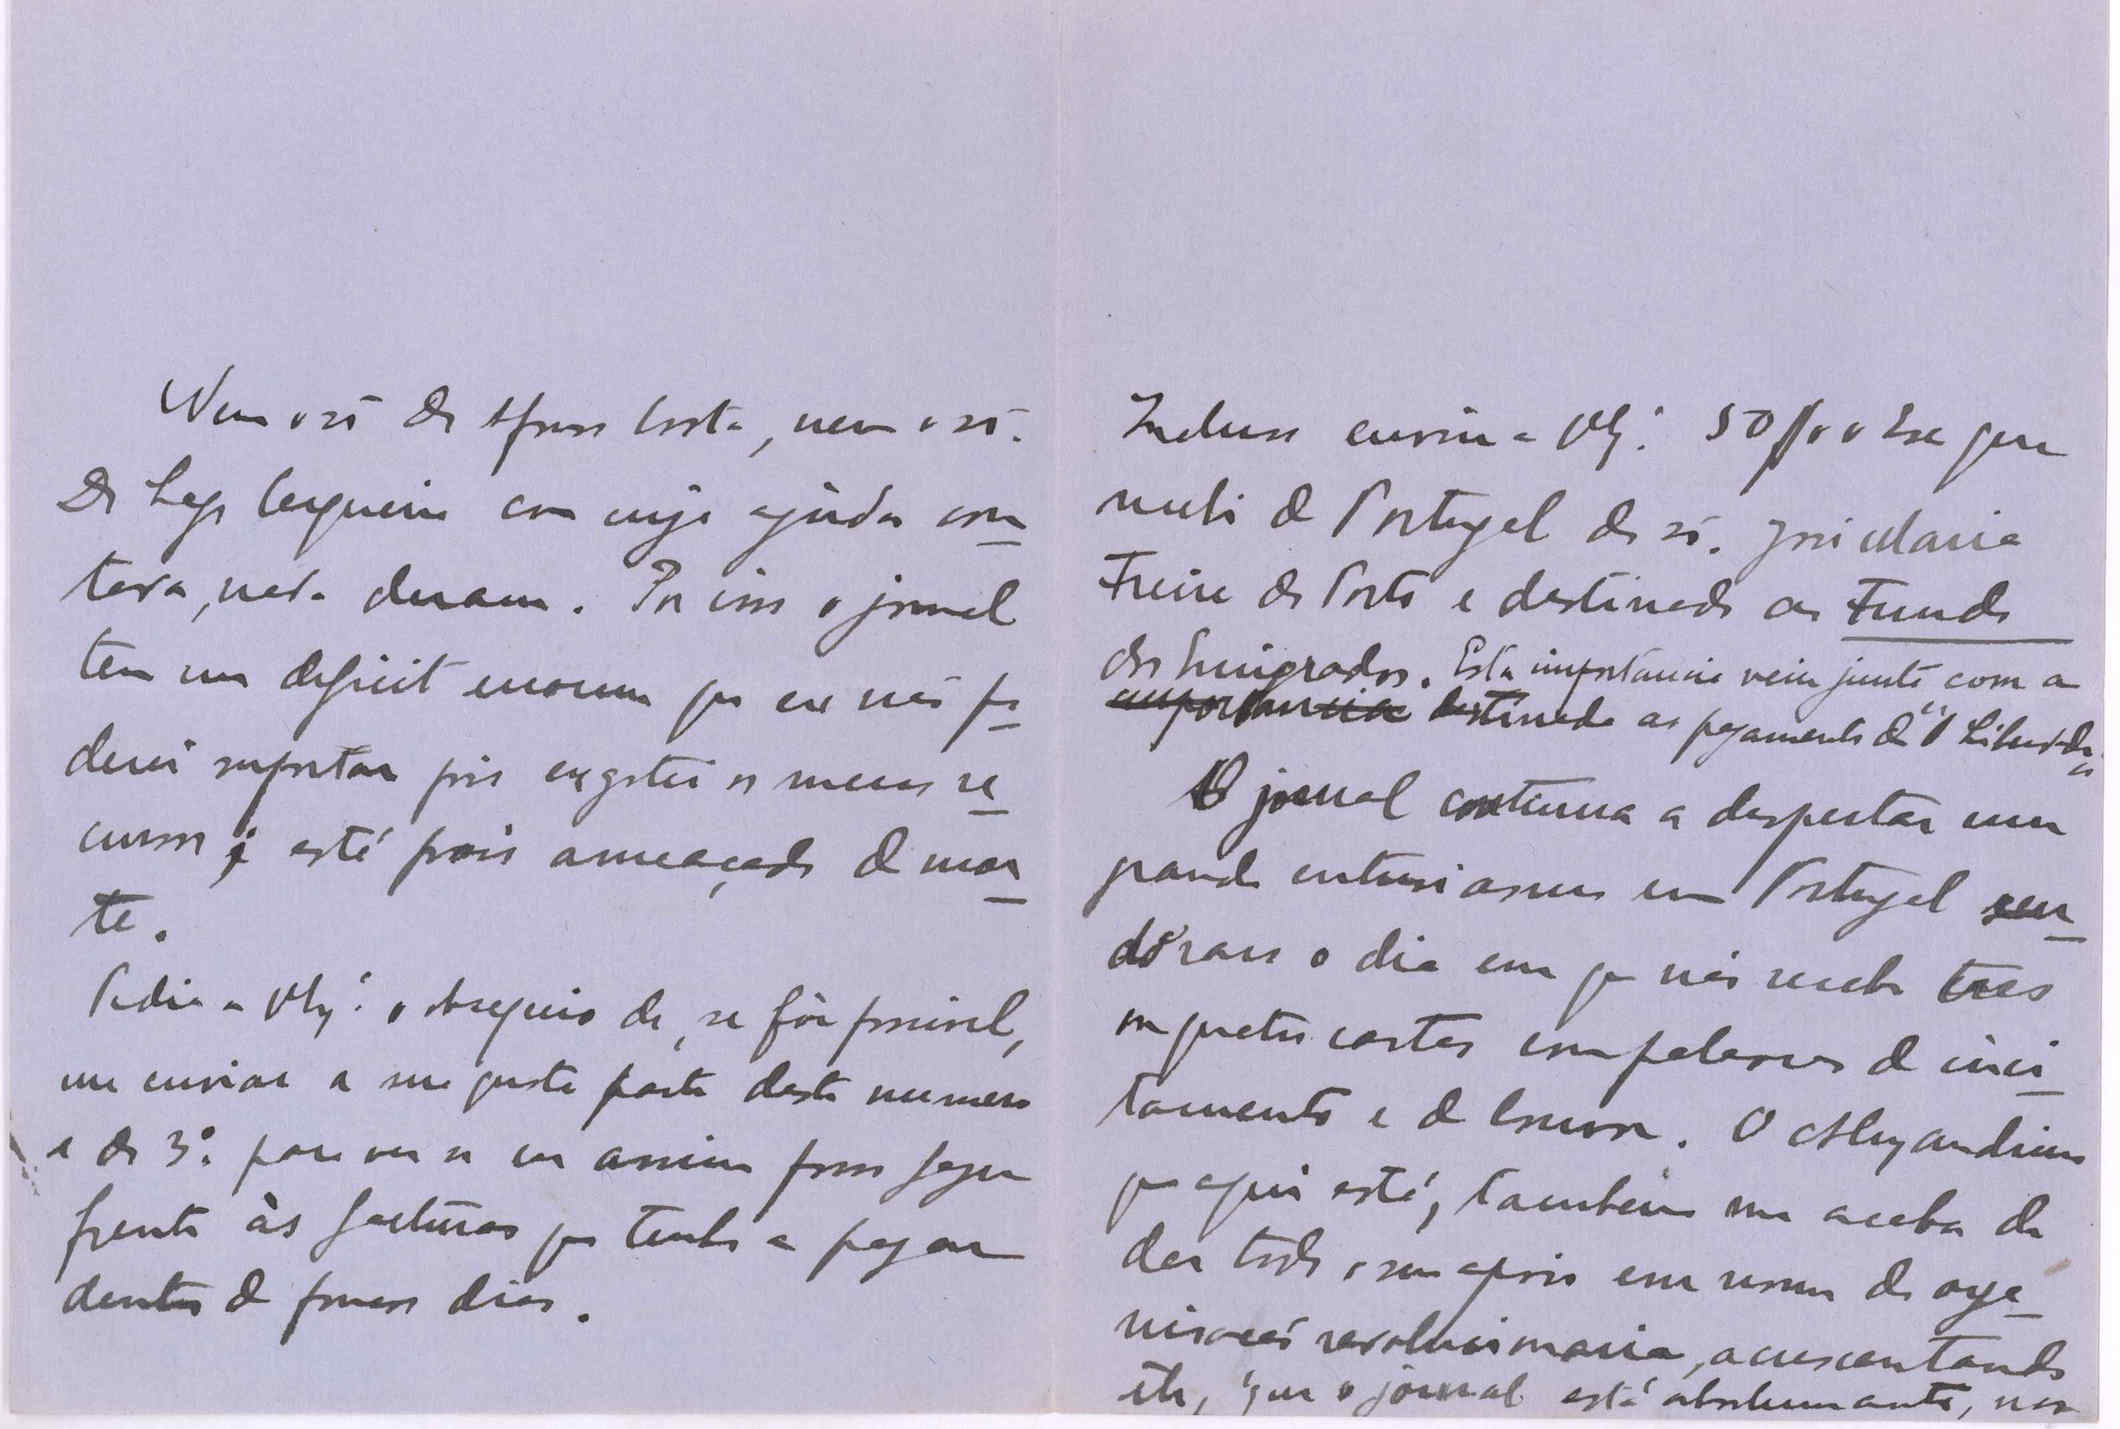 Nem o sr. Dr Afonso Costa, nem o sr.
Dr Lago Cerqueira com cuja ajuda con
tava, nada deram. Por isso o jornal
tem um deficit enorme que eu não po
derei suportar pois esgotei os meus re
cursos e está pois ameaçado de mor
te.
Pedia a V. o obsequio de, se fôr possivel,
me enviar a sua quota parte deste numero
e do 3º. para ver se eu assim posso fazer
frente às facturas que tenho a pagar
dentro de poucos dias.
Incluso envio a V. 50$00 Esc que
recebi de Portugal do sr. José Maria
Freire do Porto e destinado ao Fundo
dos Emigrados. Esta importancia veiu junto com a
importancia destinada ao pagamento de "A Liberdade"
O jornal continua a despertar um
grande entusiasmo em Portugal sen
do raro o dia em que não recebo tres
ou quatro cartas com palavras de inci
tamento e de louvor. O Alexandrino
que aqui está, tambem me acaba de
dar todo o seu apoio em nome da orga
nisação revolucionaria, acrescentando
ele, que o jornal está absolutamente, nos